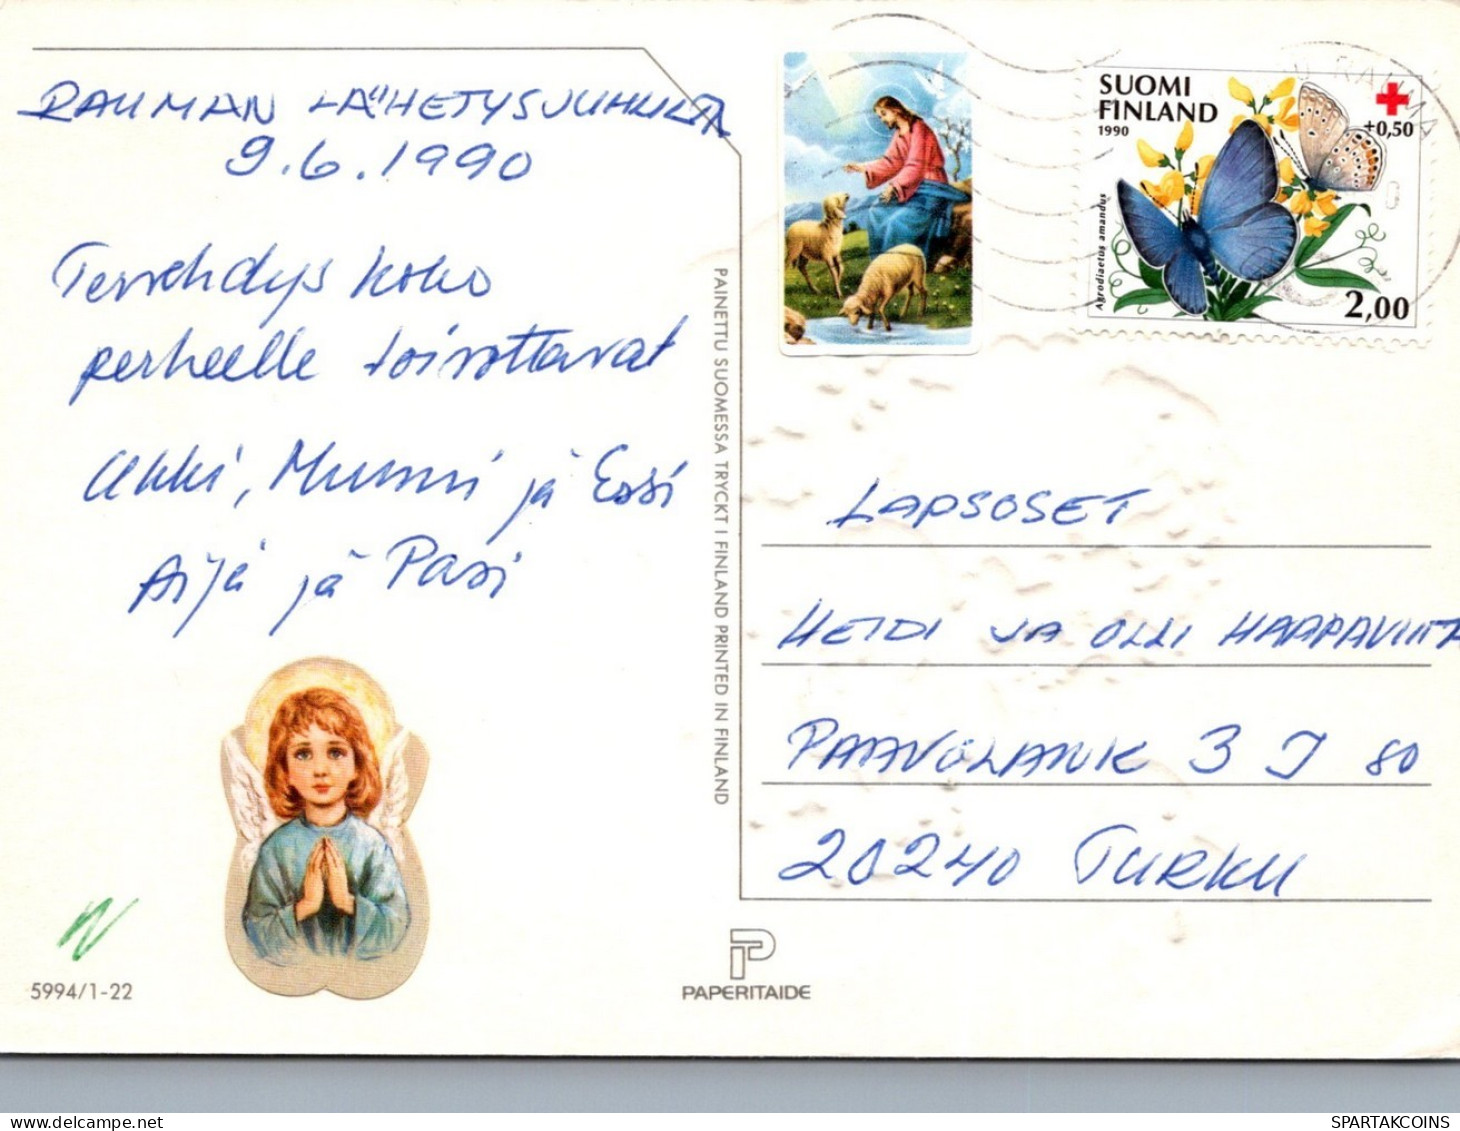 RAUMAN LÄHETYSJUHLILTA
9.6.1990
Tervehdys koko
perheelle toivottavat
Ukki, Mummi ja Essi
Aija ja Pasi
5994/1-22
PAINETTU SUOMESSA TRYCKT I FINLAND PRINTED IN FINLAND
PAPERITAIDE
RAUMA
SUOMI
FINLAND
1990
+0,50
Agrodiaetus amandus
2,00
LAPSOSET
HEIDI JA OLLI HAAPAVIITA
PAAVOLANK 3 J 80
20240 TURKU
SPARTAKCOINS
www.delcampe.net